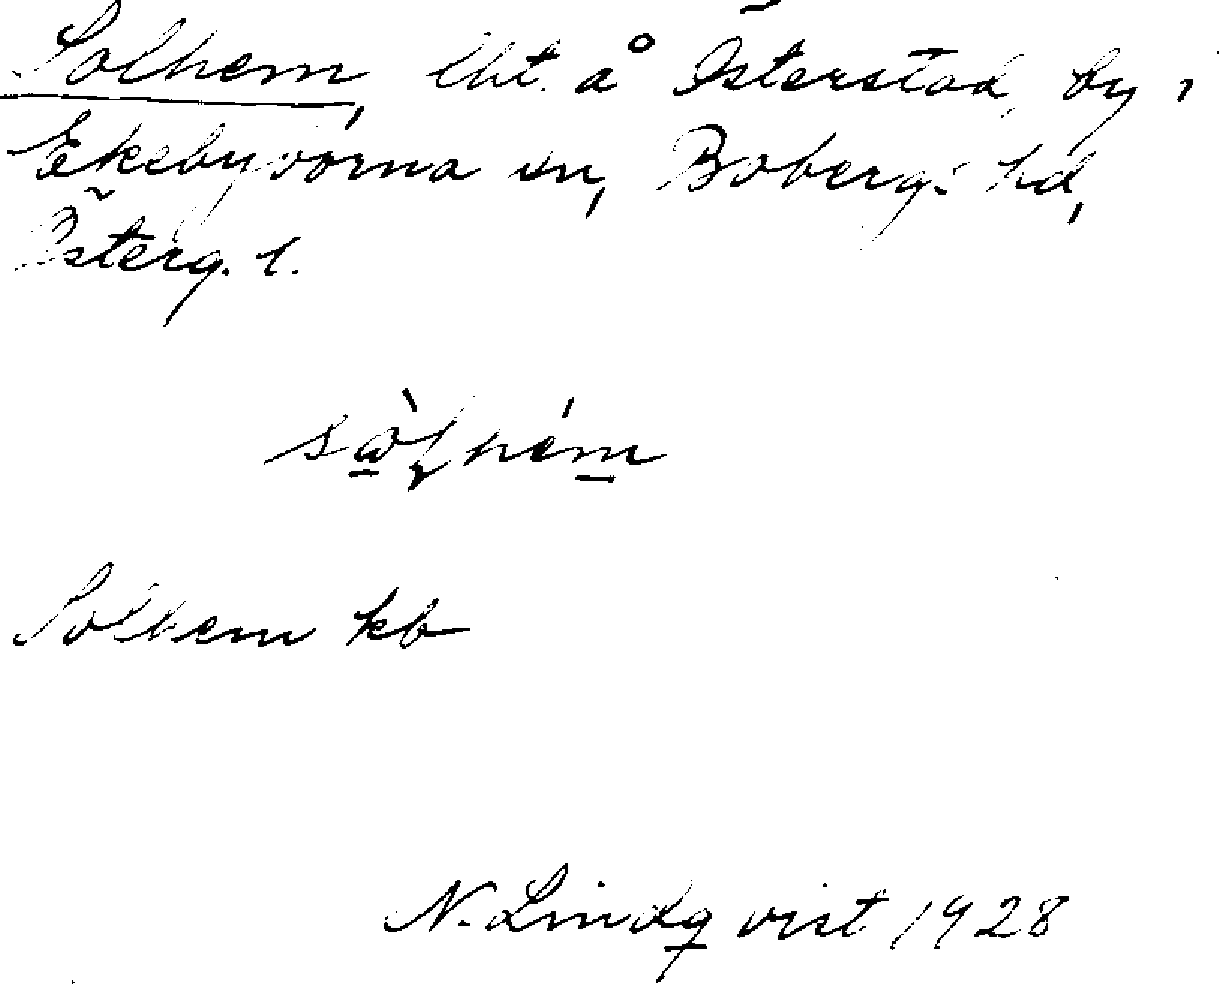 Solhem, lht. å Österstad, by i
Ekebyborna sn, Bobergs hd,
Österg. l.
Solhem kb
N. Lindqvist 1928